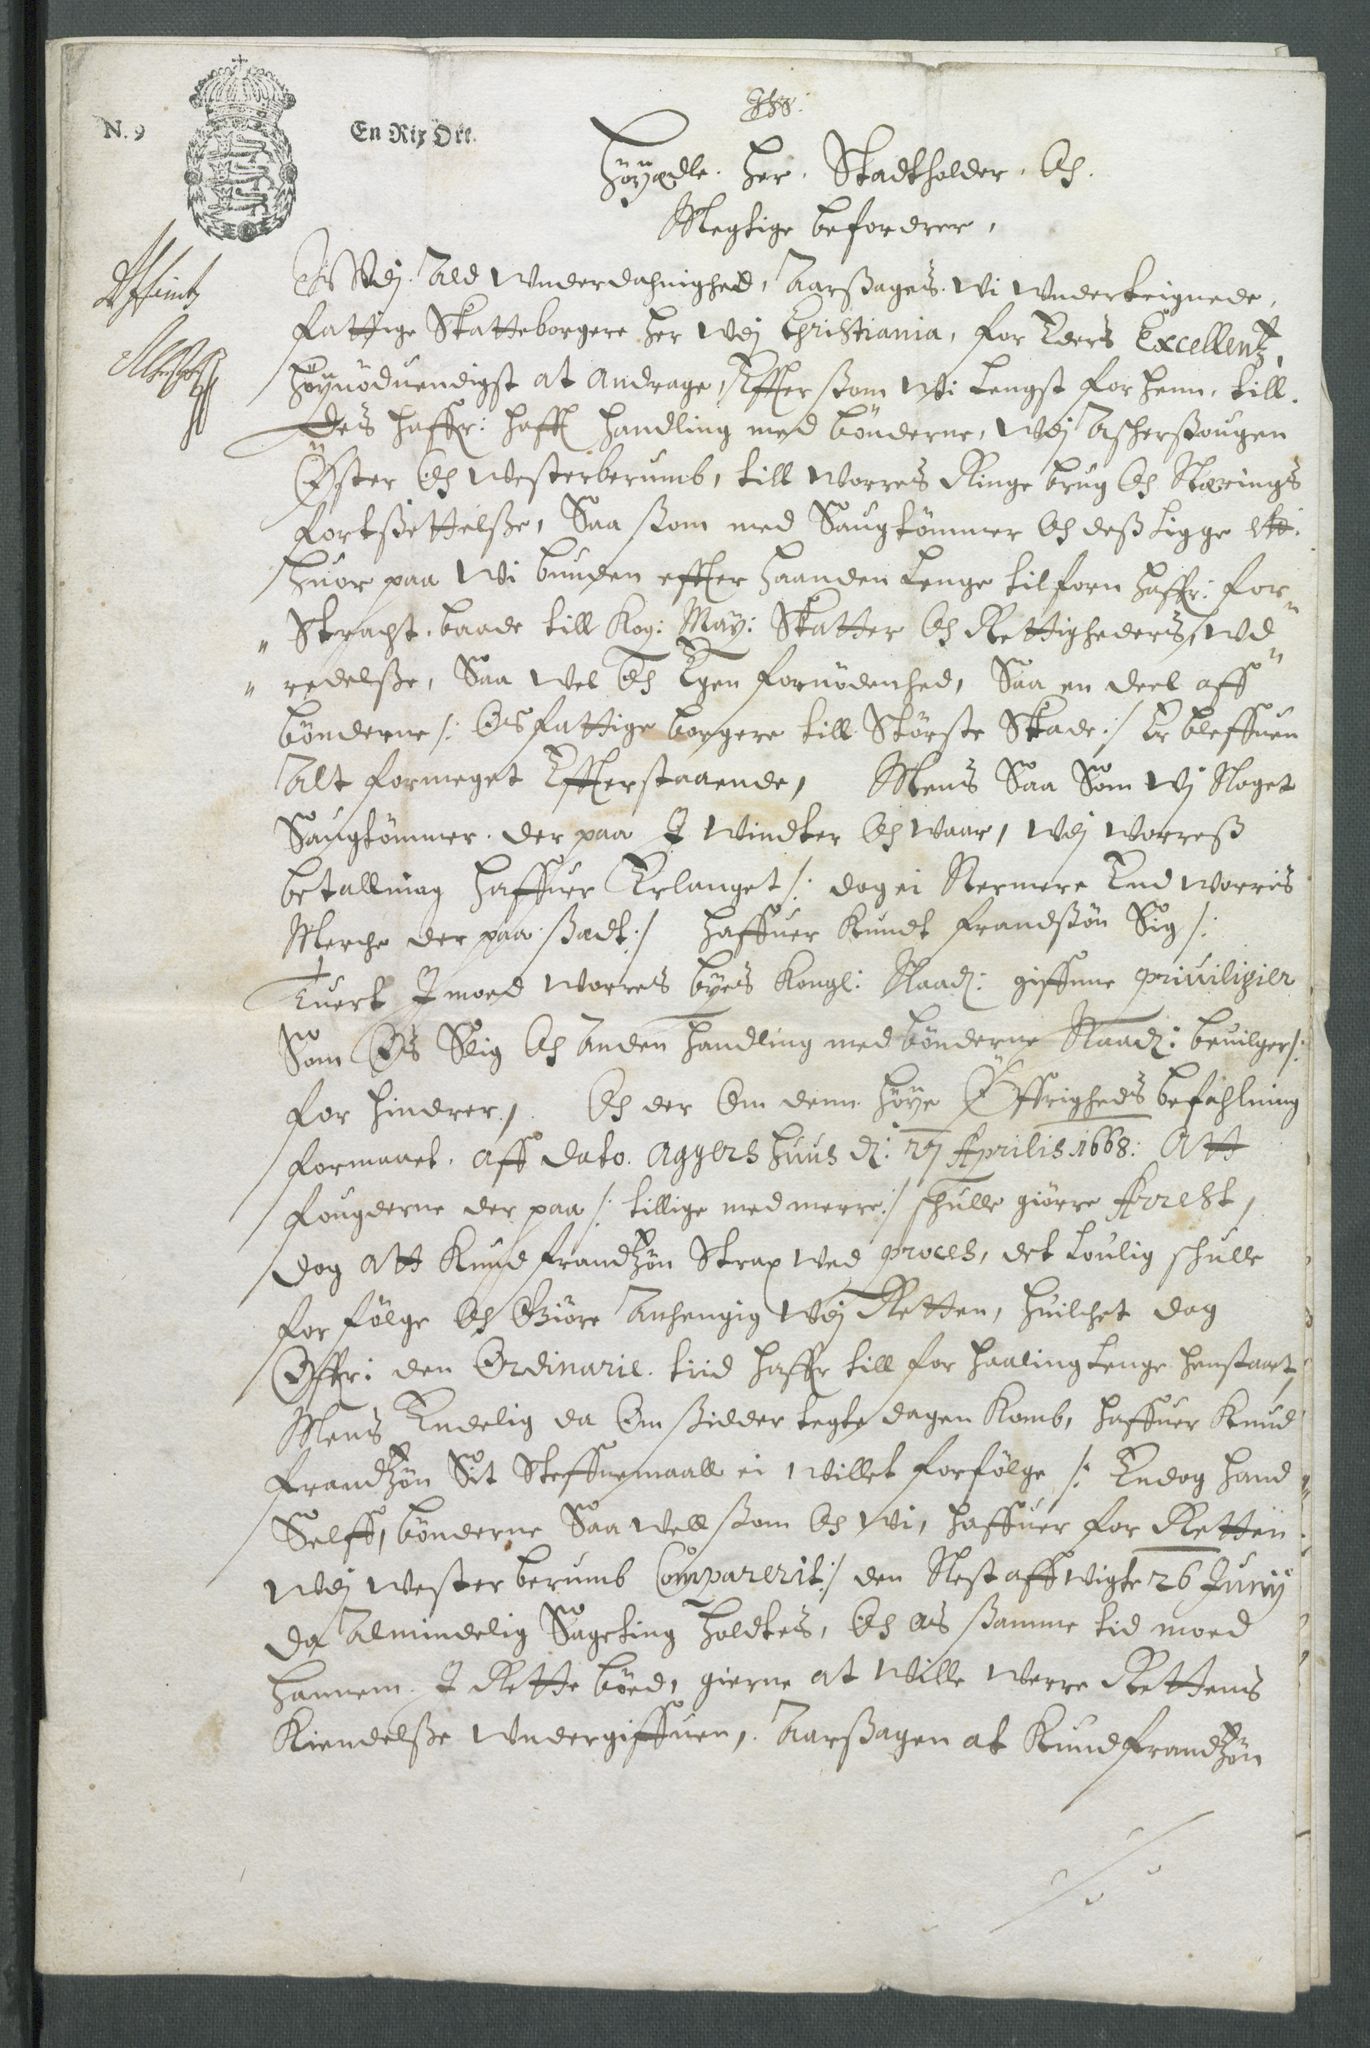 N. 9
En Rix Ort.
Höyædle Her Stadtholder Oc
Megtige befordrer,
Wdj Ald Wnderdahnighed, Aarßages Wi Wnderteignede,
fattige Skatteborgere her Wdj Christiania, for Eders Excellentz,
höynödvendigst at andrage, Effterßom Wi Lengst forhenn, till
des haffr: hafft handling med bönderne, Wdj Ascherßougen
Öster Oc Westerberumb, till Worres Ringe brug Oc Nærings
fortßettelße, Saa ßom med Saugtömmer Oc deß Ligge etc.
huor paa Wi bunden effter haanden Lenge tilforn haffr: for
Stracht, baade till Kog: May: Skatter Oc Rettigheders, Wd
redelße, Saa Wel Oc Egen fornödenhed, Saa en deel aff
bönderne /: Os fattige borgere till Störste Skade :/ Er bleffuen
Alt formeget Effterstaaende, Mens Saa Som Wj Noget
Saugtömmer der paa I Windter Oc Waar, Wdj Worreß
betallning haffuer Erlanget /: dog ei Nermere End Worris
Merche der paa ßadt :/ haffuer Knudt Frandßön Sig /:
Tuert Imoed Worres byes Kongl: Naad: giffune privilegier
Som Os Slig Oc Anden handling med bönderne Naad: bevilger :/
for hindrer, Oc der Om denn höye Öffrigheds befahlning
formaaet, aff dato Aggers huus d: 27 Aprilis 1668: Att
fougderne der paa /: tillige med merre :/ schulle giörre Arrest,
dog Att Knud Frandßön Strax Wed proces, det Loulig schulle
forfölge Oc Giöre Anhengig Wdj Retten, huilchet dog
Offr: den Ordinarie tiid haffr till forhaaling Lenge henstaaet,
Mens Endelig da Om ßidder tegte dagen Komb, haffuer Knud
Frandßön Sit Steffnemaall ei Willet forfölge /: Endog hand
Selff, bönderne Saa Well ßom Oc Wi, haffuer for Retten
Wdj Westerberumb Comparerit :/ den Nest affwigte 26 Junij
da Almindelig Sageting holdtes, Oc Os ßamme tid moed
hannem I Rette böed, gierne at Wille Werre Rettens
Kiendelße Wndergiffuen, Aarßagen at Knud Frandßön